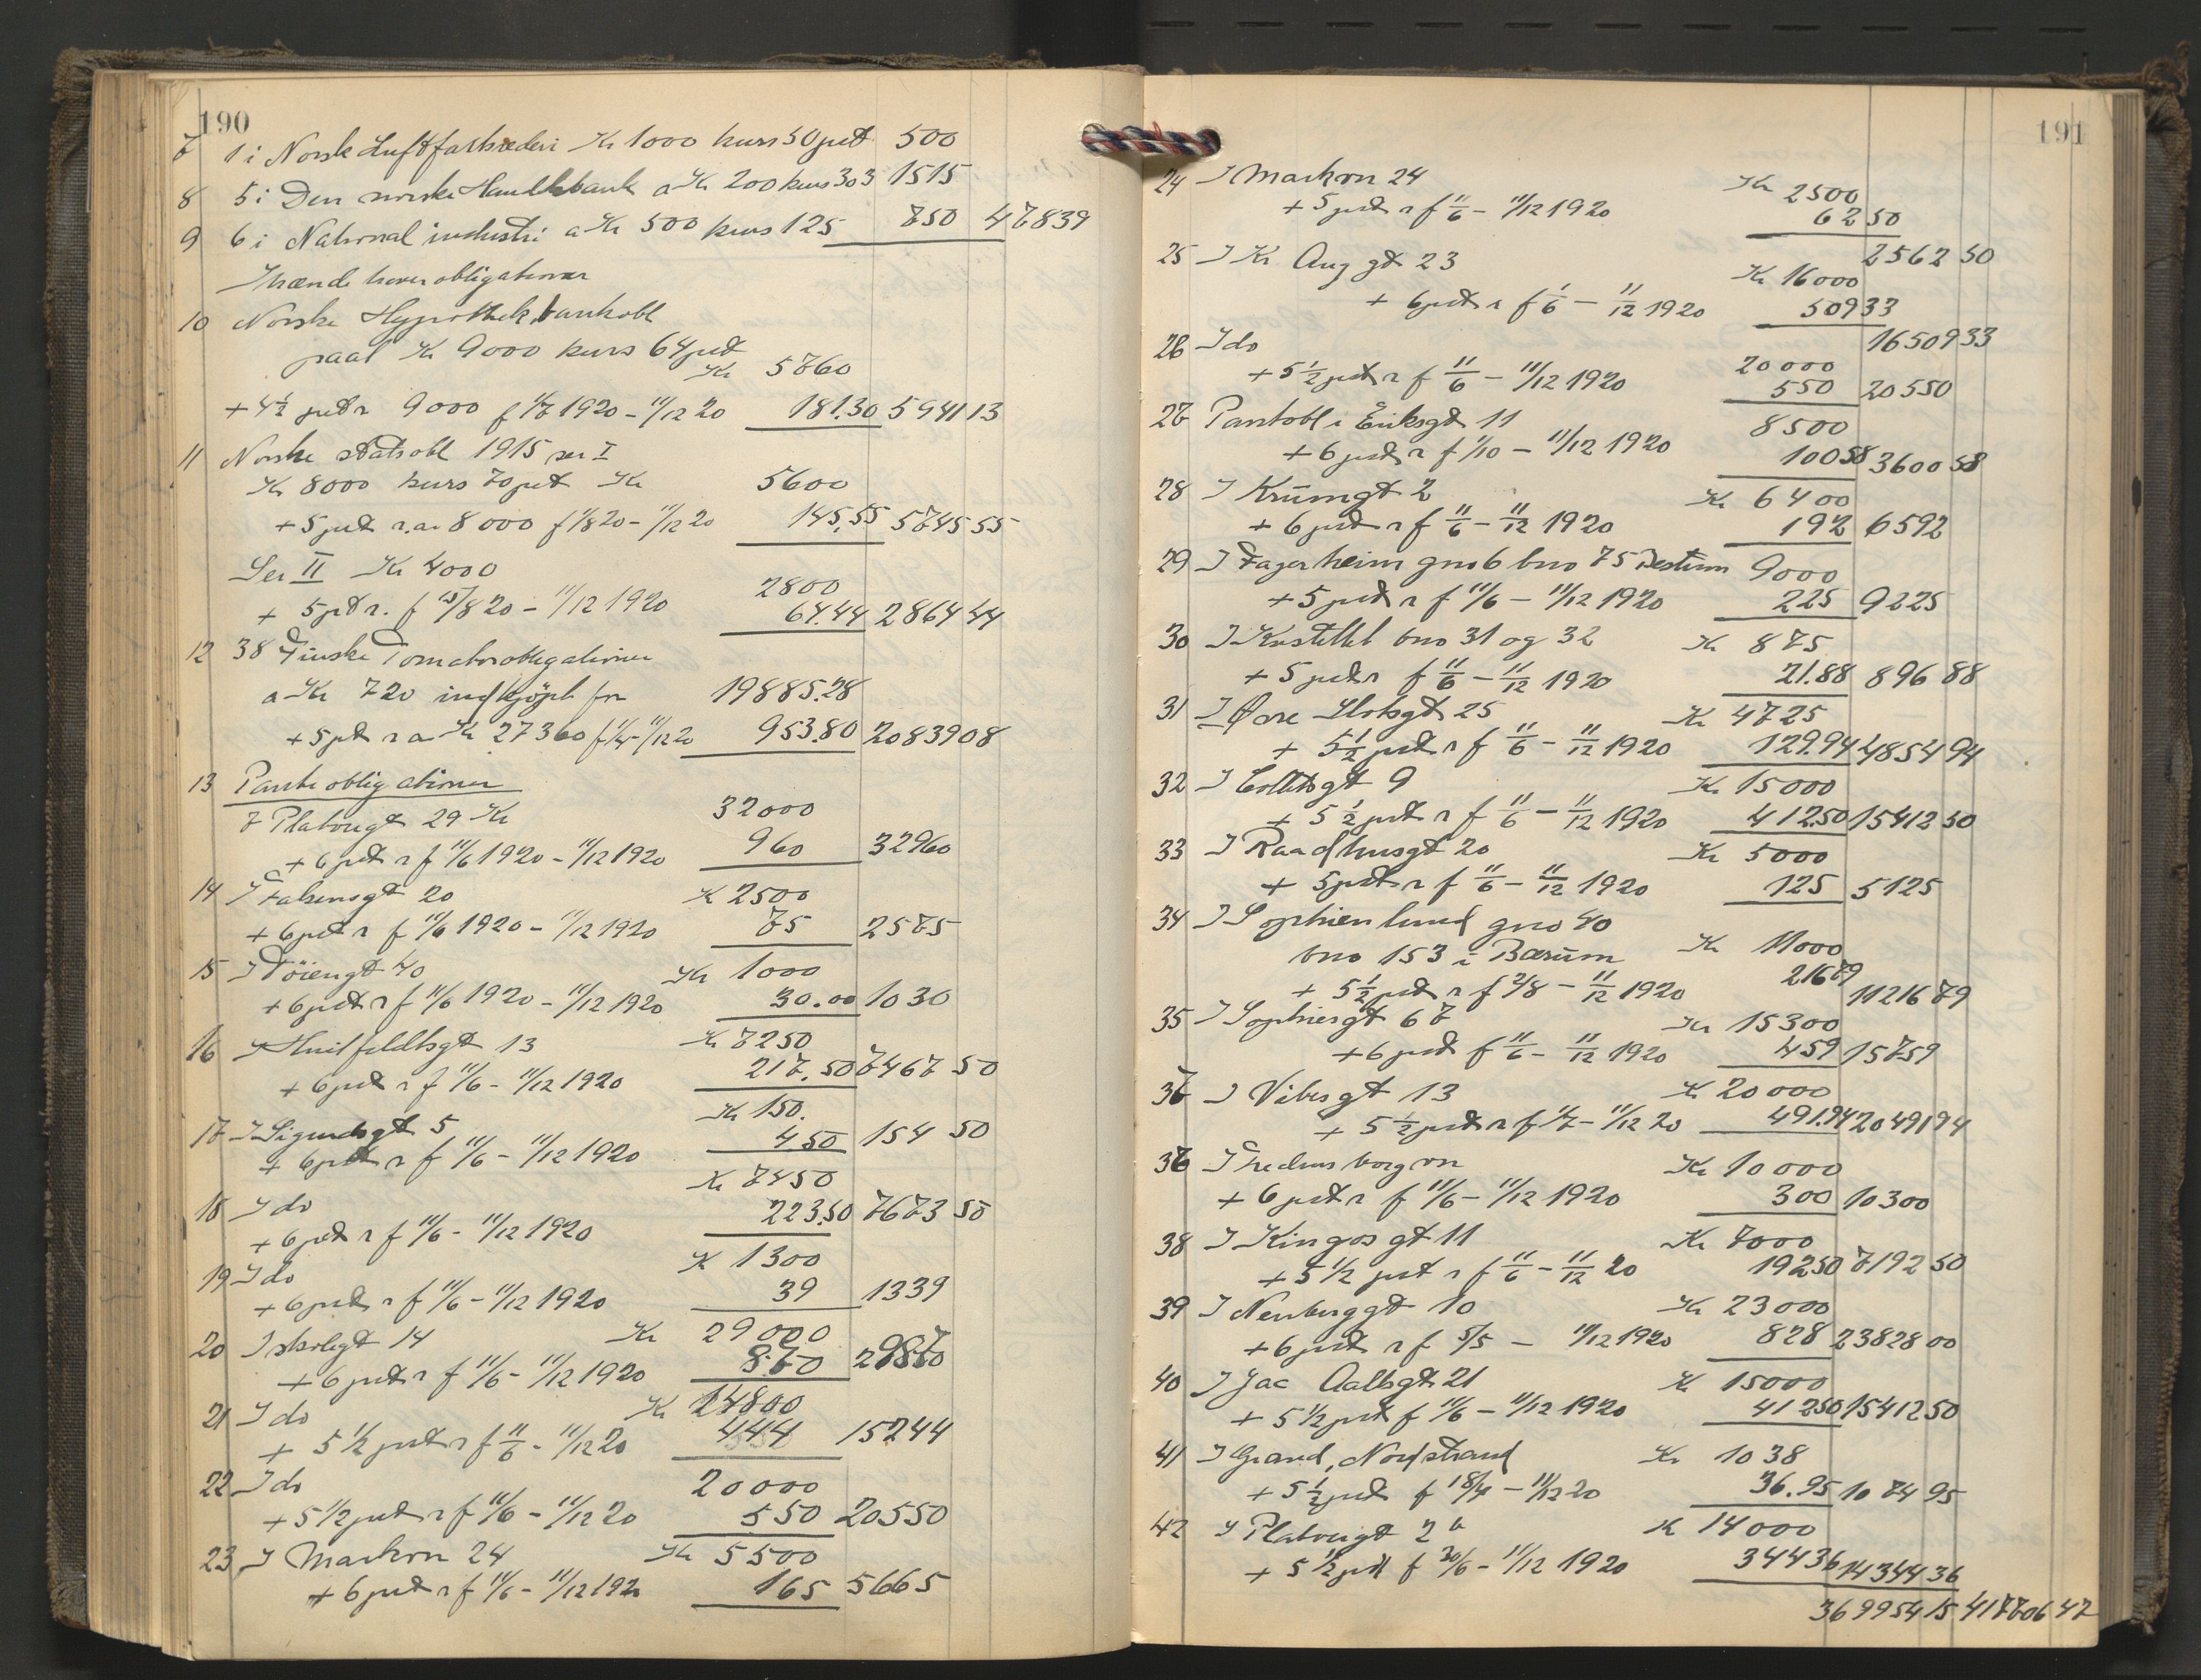 190
7 1 i Norsk Luftfartsrederi Kr 1000 kurs 50 pct 500
8 5 i Den norske Handelsbank a Kr 200 kurs 303 1515
9 6 i National industri a Kr 500 kurs 125 750 47839
Ihændehaverobligationer
10 Norske Hypothekbankobl
paal Kr 9000 kurs 64 pct
Kr 5760
+ 4½ pct r 9000 f 1/7 1920 - 11/12 20 181.30 5941 13
11 Norske statsobl 1915 ser I
Kr 8000 kurs 70 pct Kr 5600
+ 5 pct r. a 8000 f 1/8 20 - 11/12 20 145.55 5745 55
Ser II Kr 4000 2800
+ 5 pct r. f 15/8 20 - 11/12 1920 64.44 2864 44
12 38 Finske Tomatorobligationer
a Kr 720 indkjöpt for 19885.28
+ 5 pct r a Kr 27360 f 1/4 - 11/12 20 953.80 20839 08
13 Panteobligationer
I Platougt 29 Kr 32000
+ 6 pct r f 11/6 1920 - 11/12 1920 960 32960
14 I Falsensgt 20 K 2500
+ 6 pct r f 11/6 1920 - 11/12 1920 75 2575
15 I Töiengt 40 Kr 1000
+ 6 pct r f 11/6 1920 - 11/12 1920 30.00 1030
16 I Huitfeldtsgt 13 Kr 7250
+ 6 pct r f 11/6 - 11/12 1920 217.50 7467 50
Kr 150.
17 I Sigurdsgt 5 4.50 154 50
+ 6 pct r f 11/6 - 11/12 1920
Kr 7450
18 I do 223.50 7673 50
+ 6 pct r f 11/6 - 11/12 1920
K 1300
19 I do 39 1339
+ 6 pct r f 11/6 - 11/12 1920
20 I skolegt 14 Kr 29000
+ 6 pct r f 11/6 - 11/12 1920 870 29870
21 I do Kr 14800
+ 5 1/2 pct r f 11/6 - 11/12 20 444 15244
22 I do 20000
+ 5 1/2 pct r f 11/6 - 11/12 20 550 20550
23 I Markvn 24 Kr 5500
+ 6 pct r f 11/6 - 11/12 1920 165 5665
191
24 I Markvn 24 Kr 2500
+ 5 pct r f 11/6 - 11/12 1920 62 50
2562 50
25 I Kr Aug gt 23 Kr 16000
+ 6 pct r f 1/6 - 11/12 1920 509 33
16509 33
26 I do 20000
+ 5½ pct r f 11/6 - 11/12 1920 550 20550
27 Pantobl i Eriksgt 11 8500
+ 6 pct r f 1/10 - 11/12 1920 100 58 3600 58
28 I Krumgt 2 K 6400
+ 6 pct r f 11/6 - 11/12 1920 192 6592
29 I Fagerheim gno 6 bno 75 9000
+ 5 pct r f 11/6 - 11/12 1920 225 9225
30 I bno 31 og 32 Kr 875
+ 5 pct r f 11/6 - 11/12 1920 21.88 896 88
31 I Øvre Slotsgt 25 Kr 4725
+ 5½ pct r f 11/6 - 11/12 1920 129.94 4854 94
32 I Collettsgt 9 Kr 15000
+ 5½ pct r f 11/6 - 11/12 1920 412.50 15412 50
33 I Raadhusgt 20 Kr 5000
+ 5 pct r f 11/6 - 11/12 1920 125 5125
34 I Sophienlund gno 40
bno 153 i Bærum Kr 11000
216 79
+ 5½ pct r f 2/8 - 11/12 1920 11216 79
35 I Sophiesgt 67 Kr 15300
+ 6 pct f 11/6 - 11/12 1920 459 15759
36 I Vibesgt 13 K 20000
+ 5½ pct r f 1/7 - 11/12 20 491.94 20491 94
37 I hedens borg vn Kr 10000
+ 6 pct r f 11/6 - 11/12 1920 300 10300
38 I Kingosgt 11 Kr 7000
+ 5 1/2 pct r f 11/6 - 11/12 20 192 50 7192 50
39 I Neuberggt 10 Kr 23000
+ 6 pct r f 5/5 - 11/12 1920 828 23828 00
40 I Jac Aallsgt 21 K 15000
+ 5 1/2 pct f 11/6 - 11/12 1920 412 50 15412 50
41 I Grand, Nordstrand Kr 1038
+ 5½ pct f 18/4 - 11/12 20 36.95 1074 95
42 I Platougt 2 b K 14000
+ 5 1/2 pct f 30/6 - 11/12 1920 344 36 14344 36
369954 15 417706 47